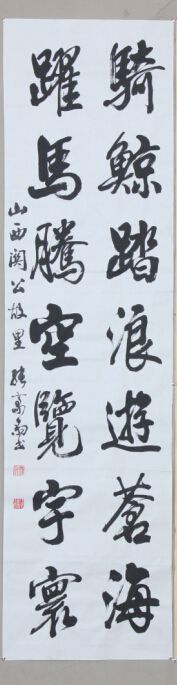 騎鯨踏浪遊蒼海
躍馬騰空覽宇寰
山西關公故里